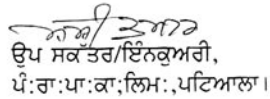 ਉਪ ਸਕੱਤਰ/ਇੰਨਕੁਅਰੀ,
ਪੰ:ਰਾ:ਪਾ:ਕਾ;ਲਿਮ:,ਪਟਿਆਲਾ।